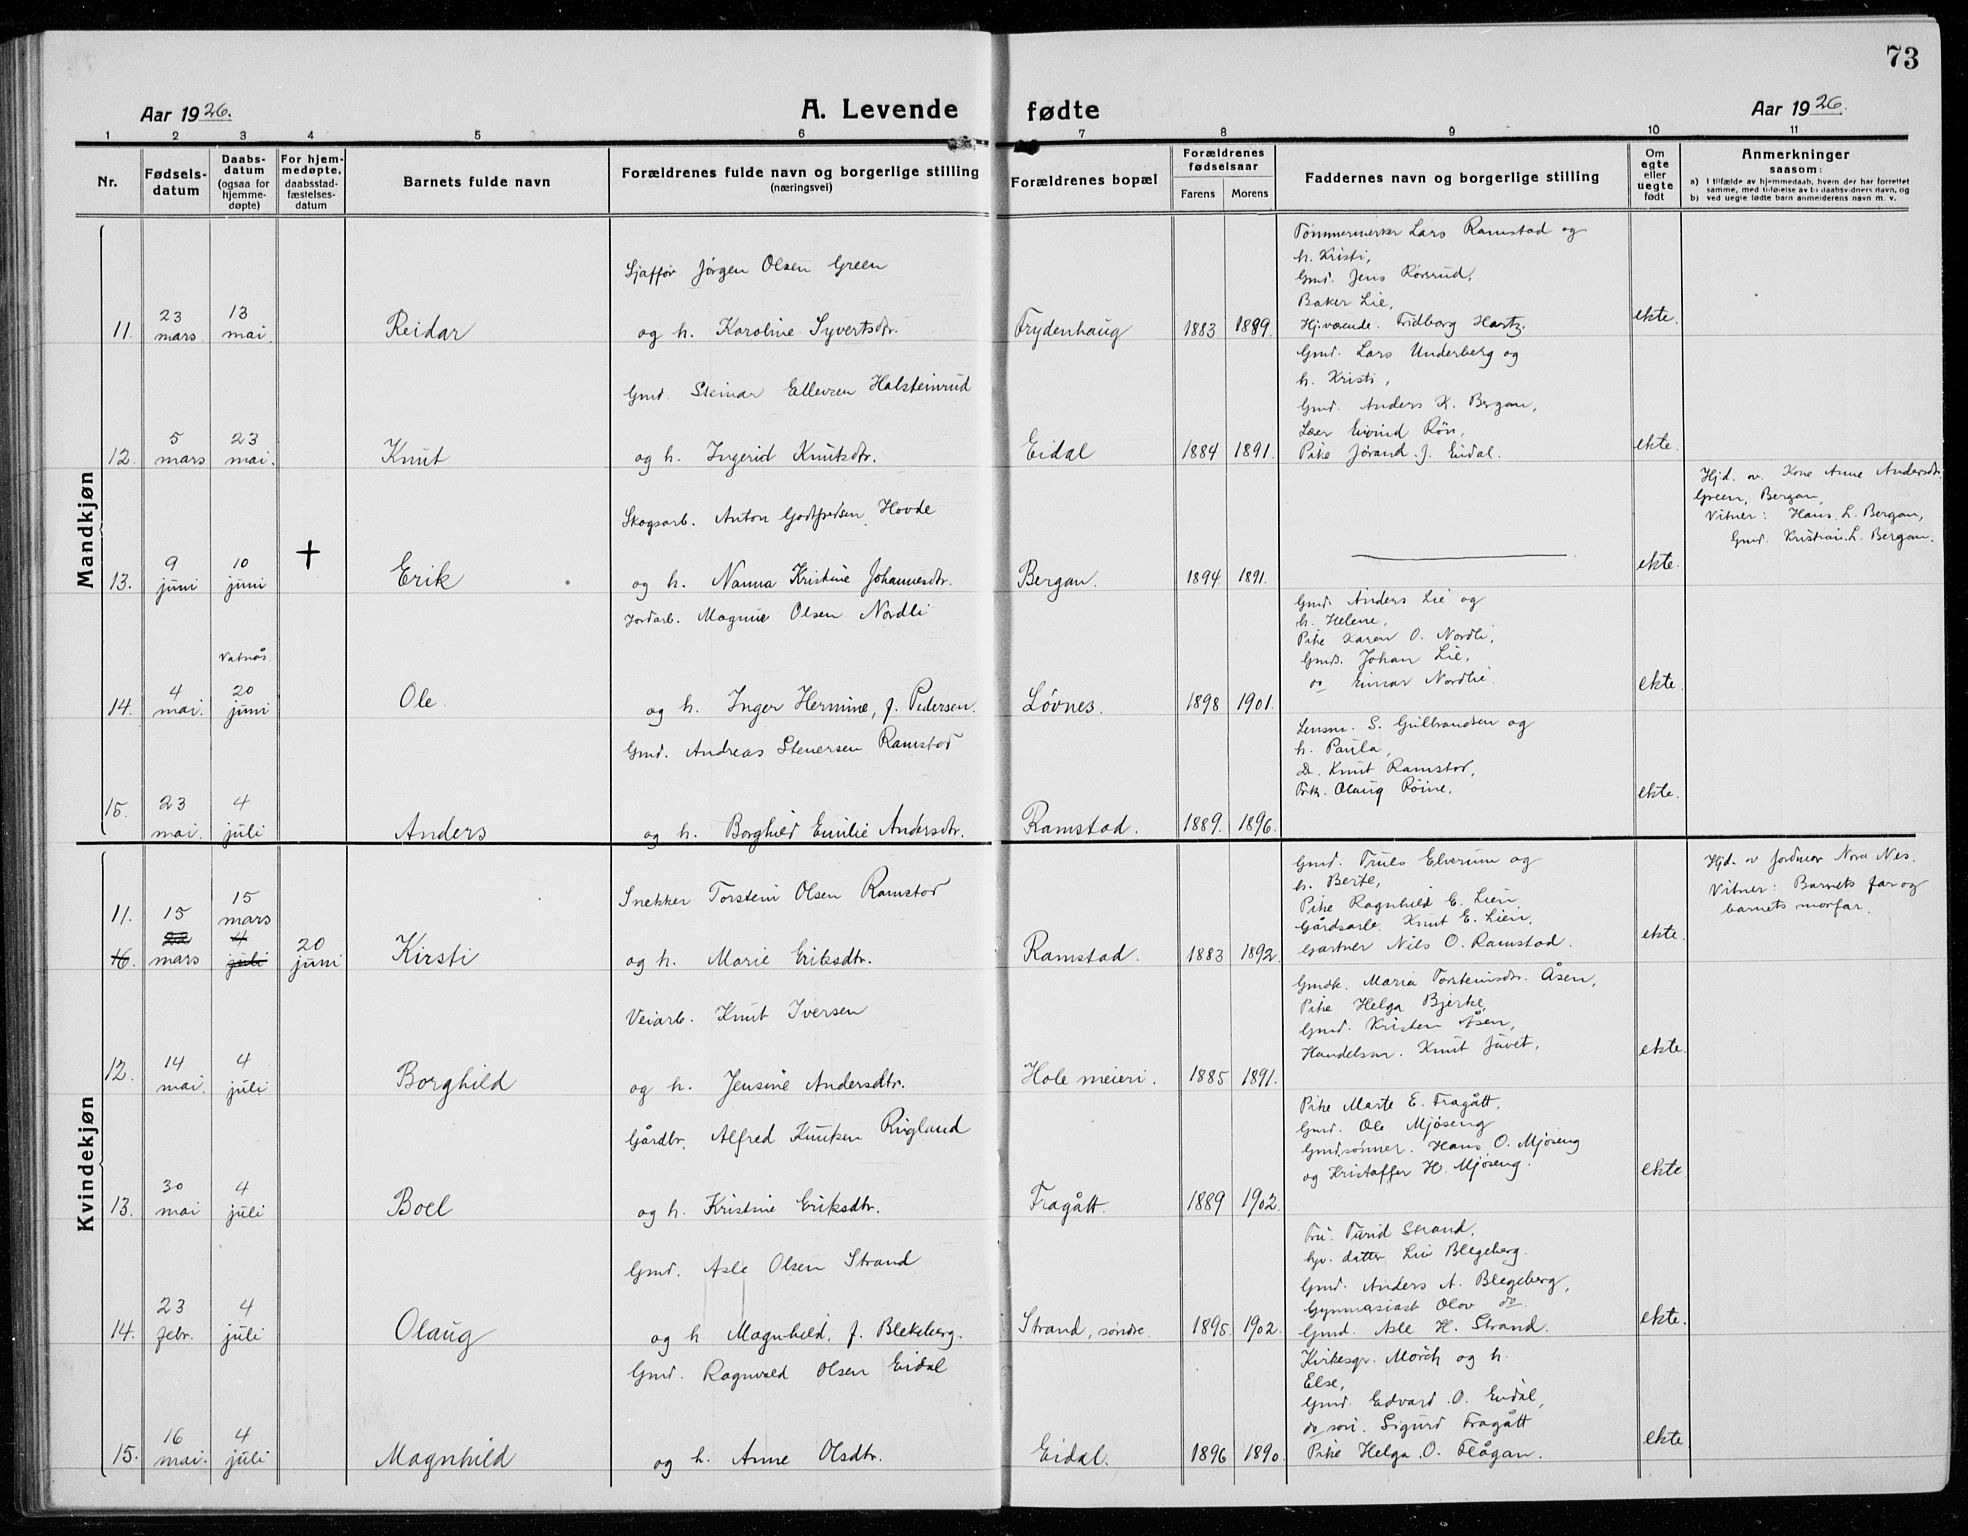 73
Aar 1926.
A. Levende fødte
Aar 1926.
1 2 3 4 5 6 7 8 9 10 11
Nr.
Fødsels-
datum
Daabs-
datum
(ogsaa for
hjemme-
døpte)
For hjem-
medøpte,
daabsstad-
fæstelses-
datum
Barnets fulde navn
Forældrenes fulde navn og borgerlige stilling
(næringsvei)
Forældrenes bopæl
Forældrenes
fødselsaar
Farens Morens
Faddernes navn og borgerlige stilling
Om
egte
eller
uegte
født
Anmerkninger
saasom:
a) I tilfælde av hjemmedaab, hvem der har forrettet
samme, med tilføielse av to daabsvidners navn, og
b) ved uegte fødte barn anmelderens navn m. v.
Mandkjøn
11. 23 mars 13 mai Reidar
Sjaffør Jørgen Olsen Green
og h. Karoline Syvertsdtr.
Frydenhaug 1883 1889.
Tømmermerker Lars Ramstad og
h. Kristi,
Gmd. Jens Rørsrud,
Baker Lie,
Hj.værende. Fridborg Hartz.
ekte.
12. 5 mars 23 mai. Knut
Gmd. Steinar Ellevsen Halsteinrud
og h. Ingerid Knutsdtr.
Eidal 1884 1891.
Gmd. Lars Underberg og
h. Kristi,
Gmd. Anders K. Bergan,
Lærer Eivind Røn,
Pike Jørand J. Eidal.
ekte.
13. 9 juni 10 juni + Erik
Skogsarb. Anton Godtfredsen Hovde
og h. Nanna Kristine Johannesdtr.
Bergan. 1894 1891.
ekte.
Hjd. av Kone Anne Andersdtr.
Green, Bergan,
Vitner: Hans L. Bergan,
Gmd. Kristian L. Bergan.
14. 4 mai. Vatnås 20 juni Ole
Jordarb. Magnus Olsen Nordli
og h. Inger Hermine, f. Pedersen.
Løvnes. 1898 1901.
Gmd. Anders Lie og
h. Helene,
Pike Karen O. Nordli,
Gmds. Johan Lie,
do Einar Nordli.
ekte.
15. 23 mai. 4 juli Anders
Gmd. Andreas Stenersen Ramstad
og h. Borghild Emilie Andersdtr.
Ramstad. 1889. 1896.
Lensm. S. Gulbrandsen og
h. Paula,
D. Knut Ramstad,
Frk. Olaug Røine,
ekte.
Kvindekjøn
11. 16. 15 22 mars 15 mars 4 juli 20 juni Kirsti
Snekker Torstein Olsen Ramstad
og h. Marie Eriksdtr.
Ramstad. 1883 1892.
Gmd. Truls Elverum og
h. Berte,
Pike Ragnhild E. Lien,
Gårdsarb. Knut E. Lien,
Gartner Nils O. Ramstad.
ekte.
Hjd. av Jordmor Nora Nes.
Vitner: Barnets far og
barnets morfar.
12. 14 mai. 4 juli Borghild
Veiarb. Knut Iversen
og h. Jensine Andersdtr.
Hole meieri. 1885 1891.
Gmdk. Maria Torsteinsdtr. Åsen,
Pike Helga Bjerke,
Gmd. Kristen Åsen,
Handelsm. Knut Juvet,
ekte.
13. 30 mai 4 juli Boel
Gårdbr. Alfred Knutsen Rugland
og h. Kristine Eriksdtr.
Fragått. 1889 1902.
Pike Marte E. Fragått,
Gmd. Ole Mjøseng
Gmd.sønner. Hans O. Mjøseng
og Kristaffer H. Mjøseng.
ekte
14. 23 febr. 4 juli Olaug
Gmd. Asle Olsen Strand
og h. Magnhild, f. Blekeberg.
Strand, søndre. 1895. 1902.
Fru. Turid Strand,
hjv. datter Liv Blegeberg.
Gmd. Anders A. Blegeberg,
Gymnasiast Olov do.
Gmd. Asle H. Strand.
ekte.
15. 16 mai. 4 juli Magnhild
Gmd. Ragnvald Olsen Eidal
og h. Anne Olsdtr.
Eidal. 1896 1890.
Kirkesgr. Mørch og h.
Else,
Gmd. Edvard O. Eidal,
do søn. Sigurd Fragått
Pike Helga O. Flågan.
ekte